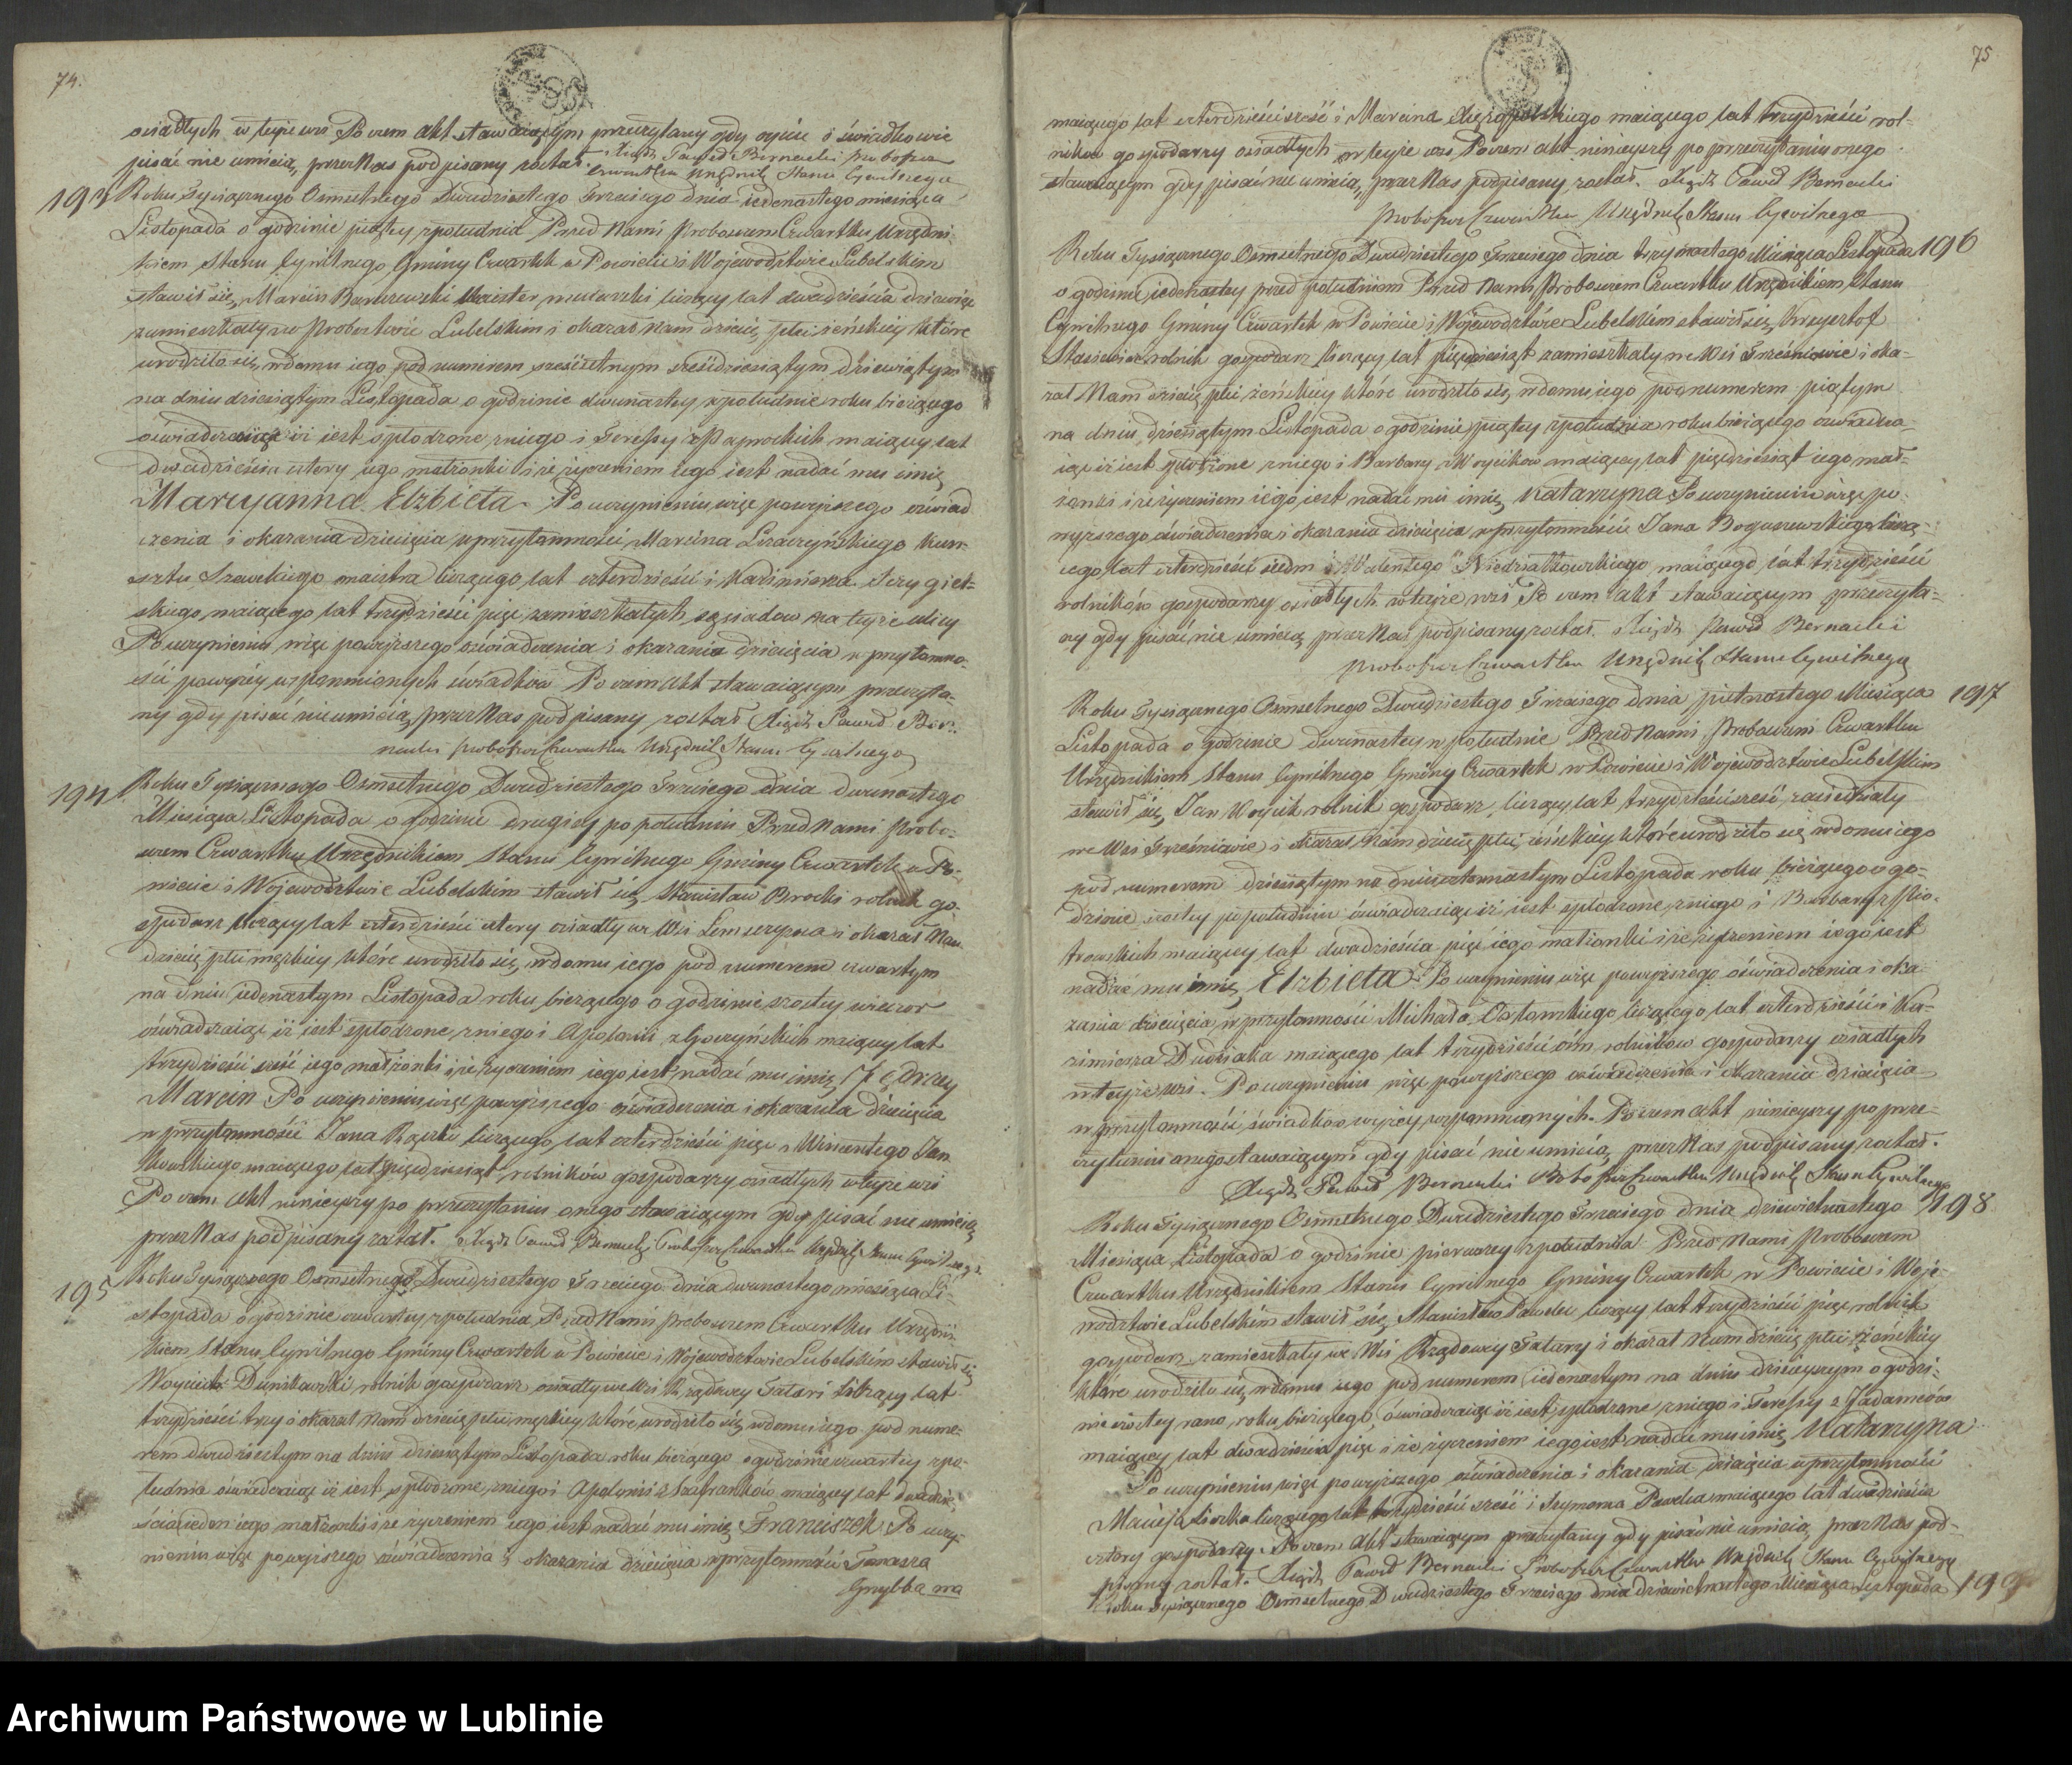 74.
osiadłych w teyże wsi Poczem Akt stawaiącym przeczytany gdy oyciec i świadkowie
pisać nie umieią, przez Nas podpisany został. Xiądz Paweł Bernacki Proboszcz
Czwartku Urzędnik Stanu Cywilnego
193 Roku Tysiącznego Osmsetnego Dwudziestego Trzeciego dnia iedenastego miesiąca
Listopada o godzinie piątey zpołudnia Przed Nami Proboszczem Czwartku Urzędni-
kiem Stanu Cywilnego Gminy Czwartek w Powiecie i Wojewodztwie Lubelskim
stawił się, Marcin Baruszewski Maister mularski liczący lat dwadzieścia dziewięc
zamieszkały na Probostwie Lubelskim i okazał Nam dziecię płci żeńskiey które
urodziło się, wdomu iego pod numerem sześćsetnym sześćdziesiątym dziewiątym
na dniu dziesiątym Listopada o godzinie dwunastey w południe roku bieżącego
oświadczaiąc iż iest spłodzone zniego i Teressy z Paprockich maiącey lat
dwadzieścia cztery iego małżonki i że życzeniem iego iest nadać mu imię
Maryanna Elżbieta. Po uczynieniu więc powyższego oświad
czenia i okazania dziecięcia w przytomności Marcina Leszczyńskiego Kun-
sztu Szewckiego maistra liczącego lat czterdzieści i Kazimierza
skiego maiącego lat trzydzieści pięc zamieszkałych sąsiadow na teyże ulicy
Po uczynieniu więc powyższego oświadczenia i okazania dziecięcia w przytomno-
ści powyżey wspomnionych świadków Poczem Akt stawaiącym przeczyta-
ny gdy pisać nie umieią, przez Nas podpisany został Xiądz Paweł Ber-
nacki Proboszcz Czwartku Urzędnik Stanu Cywilnego
194 Roku Tysiącznego Osmsetnego Dwudziestego Trzeciego dnia dwunastego
Miesiąca Listopada o godzinie drugiey po południu Przed Nami Probo-
szczem Czwartku Urzędnikiem Stanu Cywilnego Gminy Czwartek w Po-
wiecie i Wojewodztwie Lubelskim stawił się, Stanisław Brocki rolnik go-
spodarz liczący lat czterdzieści cztery osiadły we Wsi Lemszczyzna i okazał Nam
dziecię płci męzkiey które urodziło się, wdomu iego pod numerem czwartym
na dniu iedenastym Listopada roku bieżącego o godzinie szostey wieczor
oświadczaiąc iż iest spłodzone zniego i Apolonii z Goczyńskich maiącey lat
trzydzieści sześć iego małżonki i że życzeniem iego iest nadać mu imię Jędrzey
Marcin Po uczynieniu więc powyższego oświadczenia i okazania dziecięcia
w przytomności Jana Rączki liczącego lat czterdzieści pięc i Winsentego Jan
kowskiego maiącego lat pięcdziesiąt rolników gospodarzy osiadłych wteyże wsi
Poczem Akt ninieyszy po przeczytaniu onego stawaiącym gdy pisać nie umieią
przez Nas podpisany został. Xiądz Paweł Bernacki Proboszcz Czwartku Urzędnik Stanu Cywilnego
195 Roku Tysiącznego Osmsetnego Dwudziestego Trzeciego dnia dwunastego miesiąca Li-
stopada o godzinie czwartey zpołudnia Przed Nami Proboszczem Czwartku Urzędni-
kiem Stanu Cywilnego Gminy Czwartek w Powiecie i Wojewodztwie Lubelskim stawił się
Woyciech Dunikowski rolnik gospodarz osiadły we Wsi Rządowey Tatari liczący lat
trzydzieści trzy i okazał Nam dziecię płci męzkiey które urodziło się, wdomu iego pod nume-
rem dwudziestym na dniu dziesiątym Listopada roku bieżącego o godzinie czwartey zpo-
łudnia oświadczaiąc iż iest spłodzone zniego i Apolonii z Szafranków maiącey lat dwadzie-
ścia ieden iego małżonki i że życzeniem iego iest nadać mu imię Franciszek Po uczy-
nieniu więc powyższego oświadczenia i okazania dziecięcia w przytomności Tomasza
Grzybba ma
75
maiącego lat czterdzieści sześć i Marcina maiącego lat trzydzieści rol-
ników gospodarzy osiadłych w teyże wsi Poczem Akt ninieyszy po przeczytaniu onego
stawaiącym gdy pisać nie umieią, przez Nas podpisany został. Xiądz Paweł Bernacki
Proboszcz Czwartku Urzędnik Stanu Cywilnego
Roku Tysiącznego Osmsetnego Dwudziestego Trzeciego dnia trzynastego Miesiąca Listopada 196
o godzinie iedenastey przed południem Przed Nami Proboszczem Czwartku Urzędnikiem Stanu
Cywilnego Gminy Czwartek w Powiecie i Wojewodztwie Lubelskim stawił się, Krzysztof
Stasieluk rolnik gospodarz liczący lat pięcdziesiąt zamieszkały we Wsi Trześniowie i oka-
zał Nam dziecię płci żeńskiey które urodziło się, wdomu iego pod numerem piątym
na dniu dziesiątym Listopada o godzinie piątey zpołudnia roku bieżącego oświadcza-
iąc iż iest spłodzone zniego i Barbary z Woycików maiącey lat pięcdziesiąt iego mał-
żonki i że życzeniem iego iest nadać mu imię Katarzyna Po uczynieniu więc po-
wyższego oświadczenia i okazania dziecięcia w przytomności Jana Boguszewskiego liczą-
cego lat czterdzieści siedm i Walentego Niedziałkowskiego maiącego lat trzydzieści
rolników gospodarzy osiadłych wteyże wsi Poczem Akt stawaiącym przeczyta-
ny gdy pisać nie umieią przez Nas podpisany został. Xiądz Paweł Bernacki
Proboszcz Czwartku Urzędnik Stanu Cywilnego
Roku Tysiącznego Osmsetnego Dwudziestego Trzeciego dnia pietnastego Miesiąca 197
Listopada o godzinie dwunastey w południe Przed Nami Proboszczem Czwartku
Urzędnikiem Stanu Cywilnego Gminy Czwartek w Powiecie i Wojewodztwie Lubelskim
stawił się, Jan Woycik rolnik gospodarz liczący lat trzydzieści sześć zasiedziały
we Wsi Trześniowie i okazał Nam dziecię płci żeńskiey które urodziło się wdomu iego
pod numerem dziesiątym na dniu czternastym Listopada roku bieżącego o go-
dzinie szostey po południu oświadczaiąc iż iest spłodzone zniego i Barbary z Pio-
trowskich maiącey lat dwadzieścia pięc iego małżonki i że życzeniem iego iest
nadać mu imię, Elżbieta Po uczynieniu więc powyższego oświadczenia i oka-
zania dziecięcia w przytomności Michała Ostowskiego liczącego lat czterdzieści i Ka-
zimierza Dudziaka maiącego lat trzydzieści ośm rolników gospodarzy osiadłych
w teyże wsi. Po uczynieniu więc powyższego oświadczenia i okazania dziecięcia
w przytomności świadków wyżey wspomnionych. Poczem Akt ninieyszy po prze-
czytaniu onego stawaiącym gdy pisać nie umieią, przez Nas podpisany został.
Xiądz Paweł Bernacki Proboszcz Czwartku Urzędnik Stanu Cywilnego
Roku Tysiącznego Osmsetnego Dwudziestego Trzeciego dnia dziewietnastego 198
Miesiąca Listopada o godzinie pierwszey zpołudnia Przed Nami Proboszczem
Czwartku Urzędnikiem Stanu Cywilnego Gminy Czwartek w Powiecie i Woje-
wodztwie Lubelskim stawił się, Stanisław Pawelec liczący lat trzydzieści pięc rolnik
gospodarz zamieszkały we Wsi Rządowey Tatary i okazał Nam dziecię płci żeńskiey
które urodziło się, wdomu iego pod numerem iedenastym na dniu dzisieyszym o godzi-
nie szostey rano, roku bieżącego, oświadczaiąc iż iest spłodzone zniego i Teressy z Jadamców
maiącey lat dwadzieścia pięc i że życzeniem iego iest nadać mu imię Katarzyna
Po uczynieniu więc powyższego oświadczenia i okazania dziecięcia w przytomności
Macieja liczącego lat trzydzieści sześć i Szymona Pawelca maiącego lat dwadzieścia
cztery gospodarzy. Poczem Akt stawaiącym przeczytany gdy pisać nie umieią, przez Nas pod-
pisany został. Xiądz Paweł Bernacki Proboszcz Czwartku Urzędnik Stanu Cywilnego
Roku Tysiącznego Osmsetnego Dwudziestego Trzeciego dnia dziewietnastego Miesiąca Listopada 199
Archiwum Państwowe w Lublinie